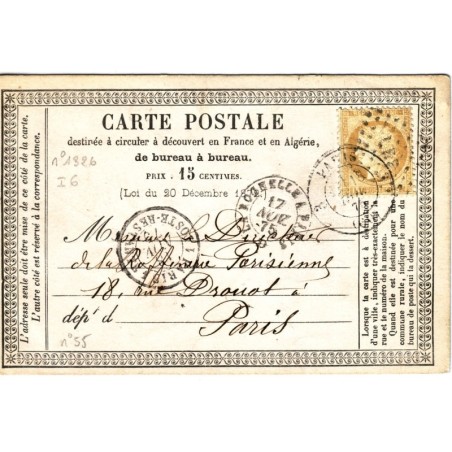 CARTE POSTALE
destinée à circuler à découvert en France et en Algérie,
de bureau à bureau.
PRIX . 15 CENTIMES.
(Loi du 20 Décembre
L'adresse seule doit être mise de ce côté de la carte.
L'autre côté est réservé à la correspondance.
n° 1826
I6
n° 55
17
NOV
POSTE-RES
Monsieur le Directeur
de la Raffinerie Parisienne
18, rue Drouot à
dépt d
Paris
PARIS
Lorsque la carte est à destination
d'une ville, indiquer très-exactement la
rue et le numéro de la maison.
Quand elle est destinée pour une
commune rurale, indiquer le nom du
bureau de poste qui la dessert.